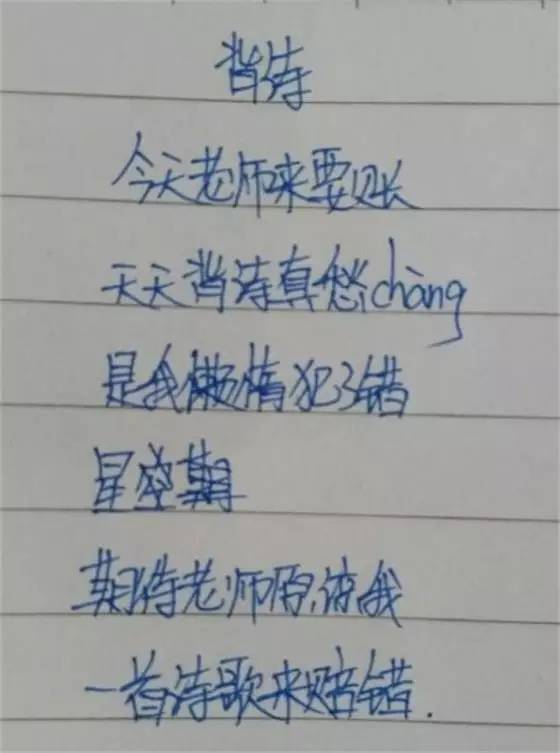 背诗
今天老师来要账
天天背诗真愁chàng
是我懒惰犯了错
星空期
期待老师原谅我
一首诗歌来赔错.